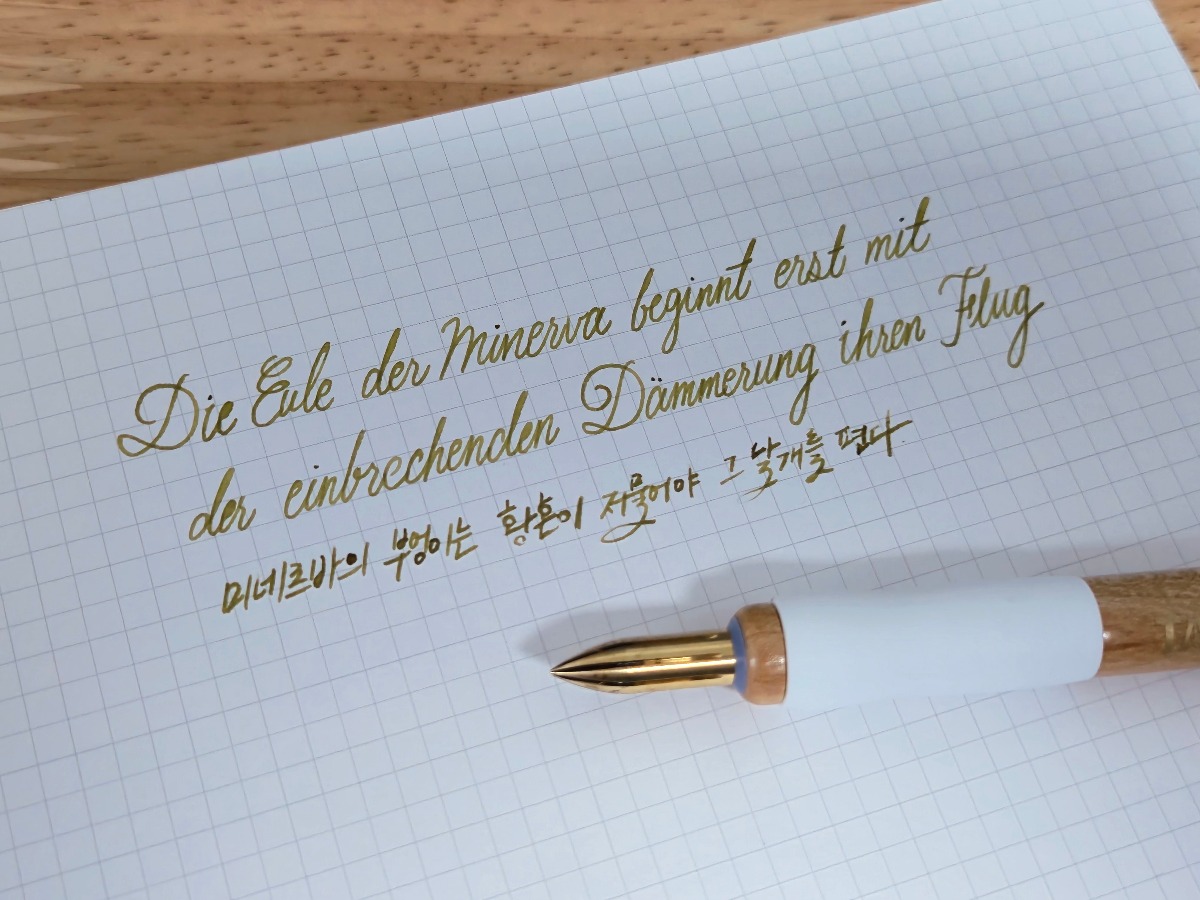 Die Eule der Minerva beginnt erst mit
der einbrechenden Dämmerung ihren Flug
미네르바의 부엉이는 황혼이 저물어야 그 날개를 편다